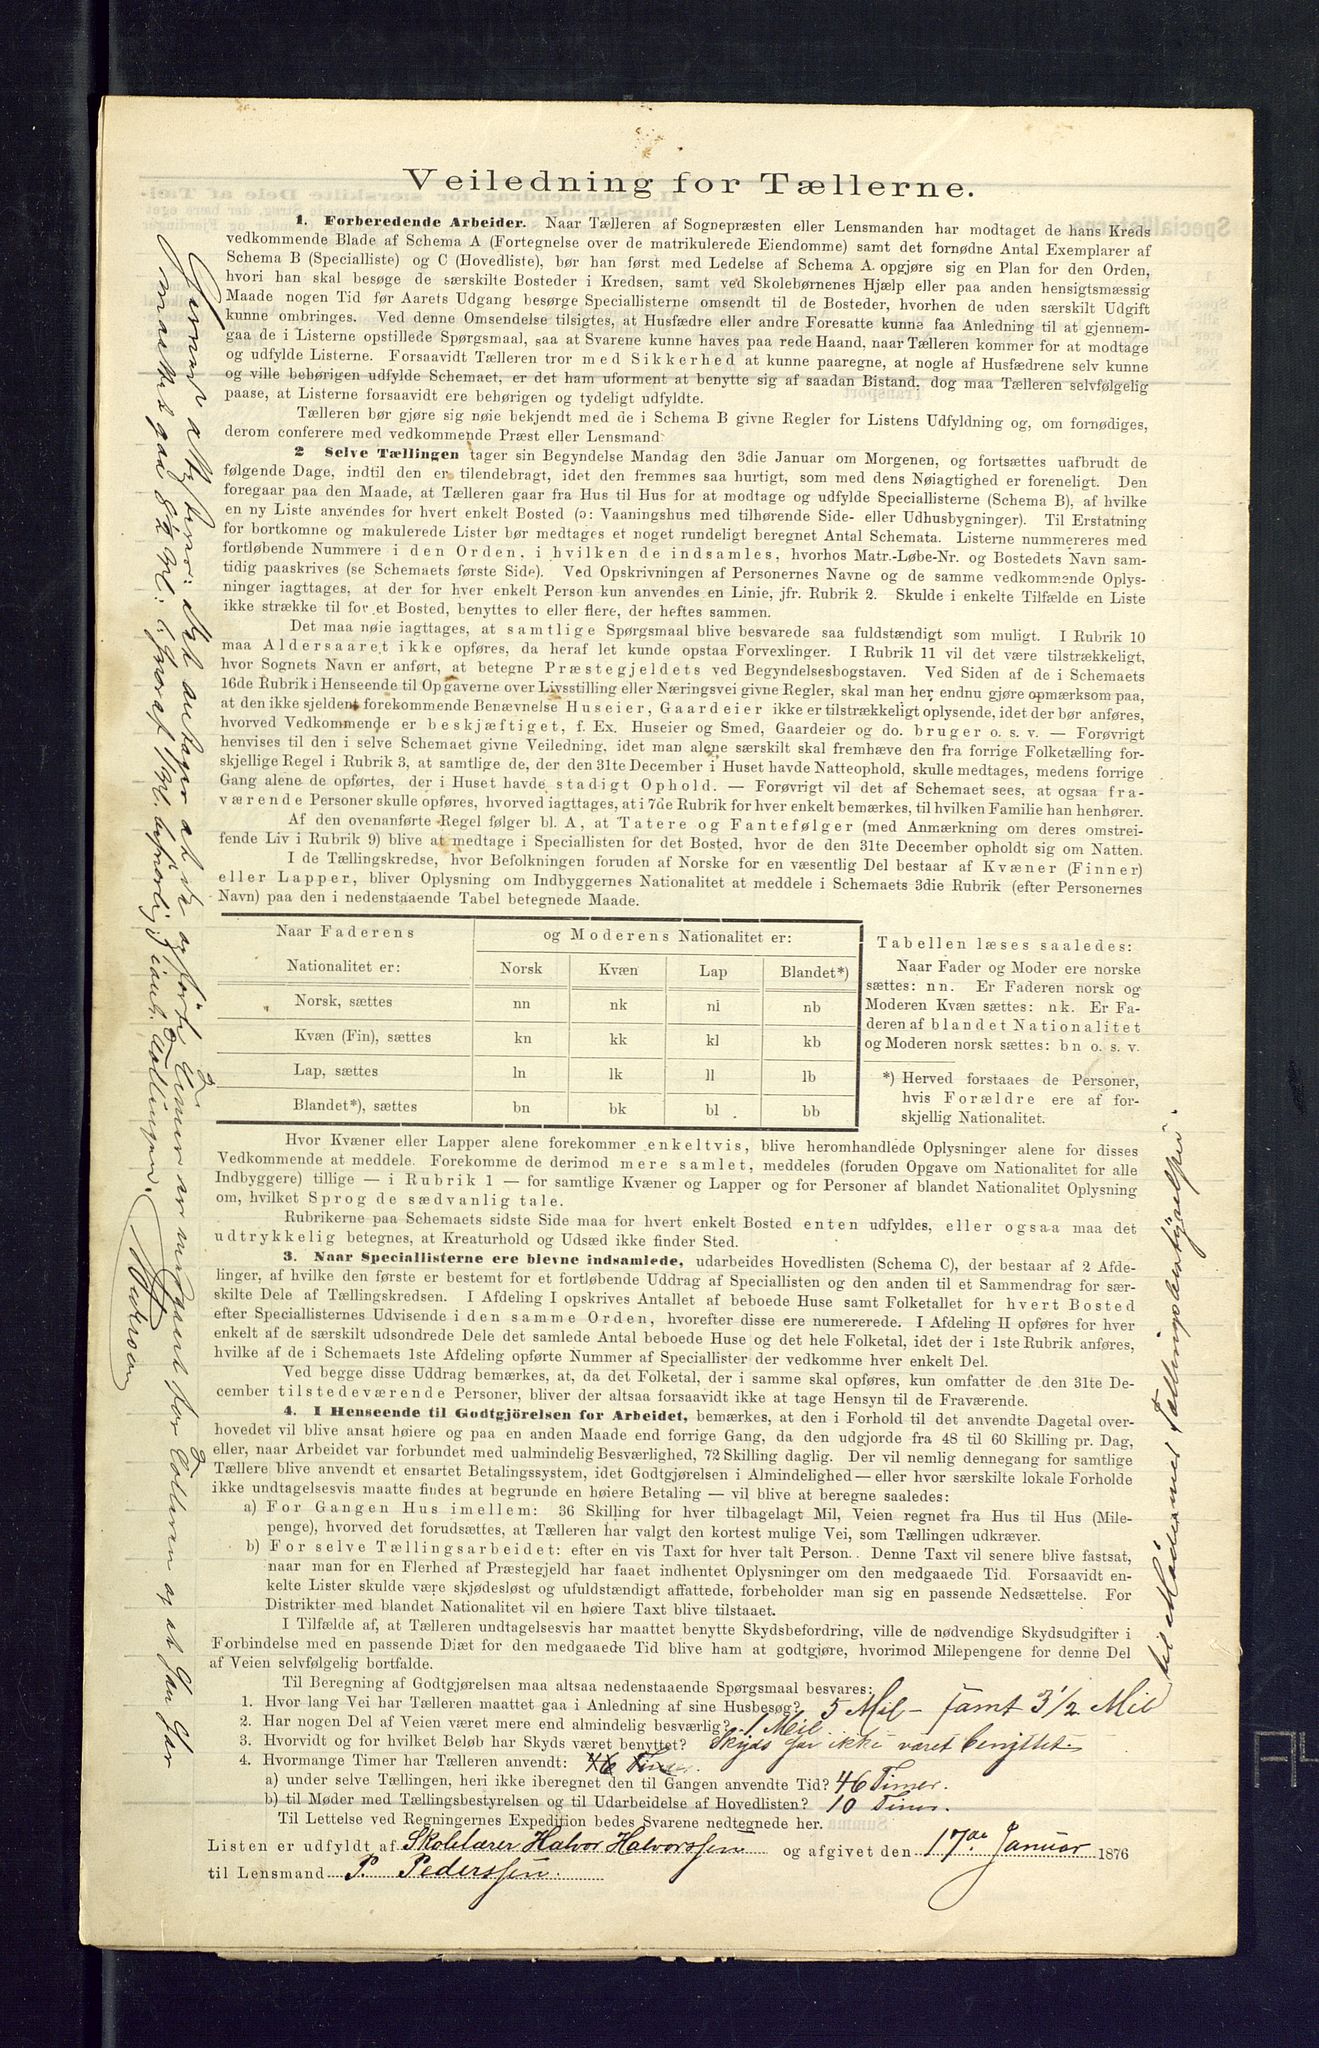 Veiledning for Tællerne.
1. Forberedende Arbeider. Naar Tælleren af Sognepræsten eller Lensmanden har modtaget de hans Kreds
vedkommende Blade af Schema A (Fortegnelse over de matrikulerede Eiendomme) samt det fornødne Antal Exemplarer af
Schema B (Specialliste) og C (Hovedliste), bør han først med Ledelse af Schema A opgjøre sig en Plan for den Orden,
hvori han skal besøge de særskilte Bosteder i Kredsen, samt ved Skolebørnenes Hjælp eller paa anden hensigtsmæssig
Maade nogen Tid før Aarets Udgang besørge Speciallisterne omsendt til de Bosteder, hvorhen de uden særskilt Udgift
kunne ombringes. Ved denne Omsendelse tilsigtes, at Husfædre eller andre Foresatte kunne faa Anledning til at gjennem-
gaa de i Listerne opstillede Spørgsmaal, saa at Svarene kunne haves paa rede Haand, naar Tælleren kommer for at modtage
og udfylde Listerne. Forsaavidt Tælleren tror med Sikkerhed at kunne paaregne, at nogle af Husfædrene selv kunne
og ville behørigen udfylde Schemaet, er det ham uforment at benytte sig af saadan Bistand, dog maa Tælleren selvfølgelig
paase, at Listerne forsaavidt ere behørigen og tydeligt udfyldte.
Tælleren bør gjøre sig nøie bekjendt med de i Schema B givne Regler for Listens Udfyldning og, om fornødiges,
derom conferere med vedkommende Præst eller Lensmand
2 Selve Tællingen tager sin Begyndelse Mandag den 3die Januar om Morgenen, og fortsættes uafbrudt de
følgende Dage, indtil den er tilendebragt, idet den fremmes saa hurtigt, som med dens Nøiagtighed er foreneligt. Den
foregaar paa den Maade, at Tælleren gaar fra Hus til Hus for at modtage og udfylde Speciallisterne (Schema B), af hvilke
en ny Liste anvendes for hvert enkelt Bosted (ɔ: Vaaningshus med tilhørende Side- eller Udhusbygninger). Til Erstatning
for bortkomne og makulerede Lister bør medtages et noget rundeligt beregnet Antal Schemata. Listerne nummereres med
fortløbende Nummere i den Orden, i hvilken de indsamles, hvorhos Matr.-Løbe-Nr. og Bostedets Navn sam-
tidig paaskrives (se Schemaets første Side). Ved Opskrivningen af Personernes Navne og de samme vedkommende Oplys-
ninger iagttages, at der for hver enkelt Person kun anvendes en Linie, jfr. Rubrik 2. Skulde i enkelte Tilfælde en Liste
ikke strække til for et Bosted, benyttes to eller flere, der heftes sammen.
Det maa nøie iagttages, at samtlige Spørgsmaal blive besvarede saa fuldstændigt som muligt. I Rubrik 10
maa Aldersaaret ikke opføres, da heraf let kunde opstaa Forvexlinger. I Rubrik 11 vil det være tilstrækkeligt,
hvor Sognets Navn er anført, at betegne Præstegjeldets ved Begyndelsesbogstaven. Ved Siden af de i Schemaets
16de Rubrik i Henseende til Opgaverne over Livsstilling eller Næringsvei givne Regler, skal man her endnu gjøre opmærksom paa,
at den ikke sjeldent forekommende Benævnelse Huseier, Gaardeier ikke er tilstrækkeligt oplysende, idet der bør anføres,
hvorved Vedkommende er beskjæftiget, f. Ex. Huseier og Smed, Gaardeier og do. bruger o. s. v. — Forøvrigt
henvises til den i selve Schemaet givne Veiledning, idet man alene særskilt skal fremhæve den fra forrige Folketælling for-
skjellige Regel i Rubrik 3, at samtlige de, der den 31te December i Huset havde Natteophold, skulle medtages, medens forrige
Gang alene de opførtes, der i Huset havde stadigt Ophold. — Forøvrigt vil det af Schemaet sees, at ogsaa fra-
værende Personer skulle opføres, hvorved iagttages, at i 7de Rubrik for hver enkelt bemærkes, til hvilken Familie han henhører.
Af den ovenanførte Regel følger bl. A, at Tatere og Fantefølger (med Anmærkning om deres omstrei-
fende Liv i Rubrik 9) blive at medtage i Speciallisten for det Bosted, hvor de den 31te December opholdt sig om Natten.
I de Tællingskredse, hvor Befolkningen foruden af Norske for en væsentlig Del bestaar af Kvæner (Finner)
eller Lapper, bliver Oplysning om Indbyggernes Nationalitet at meddele i Schemaets 3die Rubrik (efter Personernes
Navn) paa den i nedenstaaende Tabel betegnede Maade.
Naar Faderens og Moderens Nationalitet er:
Nationalitet er: Norsk Kvæn Lap Blandet*)
Norsk, sættes nn nk nl nb
Kvæn (Fin), sættes kn kk kl kb
Lap, sættes ln lk ll lb
Blandet*), sættes bn bk bl bb
Tabellen læses saaledes:
Naar Fader og Moder ere norske
sættes: nn. Er Faderen norsk og
Moderen Kvæn sættes: nk. Er Fa-
deren af blandet Nationalitet
og Moderen norsk sættes: bn o. s. v.
*) Herved forstaaes de Personer,
hvis Forældre ere af for-
skjellig Nationalitet.
Hvor Kvæner eller Lapper alene forekommer enkeltvis, blive heromhandlede Oplysninger alene for disses
Vedkommende at meddele. Forekomme de derimod mere samlet, meddeles (foruden Opgave om Nationalitet for alle
Indbyggere) tillige — i Rubrik 1 — for samtlige Kvæner og Lapper og for Personer af blandet Nationalitet Oplysning
om, hvilket Sprog de sædvanlig tale.
Rubrikerne paa Schemaets sidste Side maa for hvert enkelt Bosted enten udfyldes, eller ogsaa maa det
udtrykkelig betegnes, at Kreaturhold og Udsæd ikke finder Sted.
3. Naar Speciallisterne ere blevne indsamlede, udarbeides Hovedlisten (Schema C), der bestaar af 2 Afde-
linger, af hvilke den første er bestemt for et fortløbende Uddrag af Speciallisten og den anden til et Sammendrag for sær-
skilte Dele af Tællingskredsen. I Afdeling I opskrives Antallet af beboede Huse samt Folketallet for hvert Bosted
efter Speciallisternes Udvisende i den samme Orden, hvorefter disse ere numererede. I Afdeling II opføres for hver
enkelt af de særskilt udsondrede Dele det samlede Antal beboede Huse og det hele Folketal, idet der i 1ste Rubrik anføres,
hvilke af de i Schemaets 1ste Afdeling opførte Nummer af Speciallister der vedkomme hver enkelt Del.
Ved begge disse Uddrag bemærkes, at, da det Folketal, der i samme skal opføres, kun omfatter de den 31te De-
cember tilstedeværende Personer, bliver der altsaa forsaavidt ikke at tage Hensyn til de Fraværende.
4. I Henseende til Godtgjörelsen for Arbeidet, bemærkes, at den i Forhold til det anvendte Dagetal over-
hovedet vil blive ansat høiere og paa en anden Maade end forrige Gang, da den udgjorde fra 48 til 60 Skilling pr. Dag,
eller, naar Arbeidet var forbundet med ualmindelig Besværlighed, 72 Skilling daglig. Der vil nemlig dennegang for samtlige
Tællere blive anvendt et ensartet Betalingssystem, idet Godtgjørelsen i Almindelighed — eller hvor særskilte lokale Forholde
ikke undtagelsesvis maatte findes at begrunde en høiere Betaling — vil blive at beregne saaledes:
a) For Gangen Hus imellem: 36 Skilling for hver tilbagelagt Mil, Veien regnet fra Hus til Hus (Mile-
penge), hvorved det forudsættes, at Tælleren har valgt den kortest mulige Vei, som Tællingen udkræver.
b) For selve Tællingsarbeidet: efter en vis Taxt for hver talt Person. Denne Taxt vil senere blive fastsat,
naar man for en Flerhed af Præstegjeld har faaet indhentet Oplysninger om den medgaaede Tid. Forsaavidt en-
kelte Lister skulde være skjødesløst og ufuldstændigt affattede, forbeholder man sig en passende Nedsættelse. For
Distrikter med blandet Nationalitet vil en høiere Taxt blive tilstaaet.
I Tilfælde af, at Tælleren undtagelsesvis har maattet benytte Skydsbefordring, ville de nødvendige Skydsudgifter i
Forbindelse med en passende Diæt for den medgaaede Tid blive ham at godtgjøre, hvorimod Milepengene for denne Del
af Veien selvfølgelig bortfalde.
Til Beregning af Godtgjørelse maa altsaa nedenstaaende Spørgsmaal besvares:
1. Hvor lang Vei har Tælleren maattet gaa i Anledning af sine Husbesøg? 5 Mil – samt 3 1/2 Mil
til Mødernes Tællingsbestyrelse
2. Har nogen Del af Veien været mere end almindelig besværlig? 1 Mil.
3. Hvorvidt og for hvilket Beløb har Skyds været benyttet? Skyds har ikke været benyttet
4. Hvormange Timer har Tælleren anvendt: 46 Timer.
a) under selve Tællingen, heri ikke iberegnet den til Gangen anvendte Tid? 46 Timer.
b) til Møder med Tællingsbestyrelsen og til Udarbeidelse af Hovedlisten? 10 Timer.
Til Lettelse ved Regningernes Expedition bedes Svarene nedtegnede her.
Listen er udfyldt af Skolelærer Halvor Halvorssen og afgivet den 17de Januar 1876
til Lensmand P. Pederssen